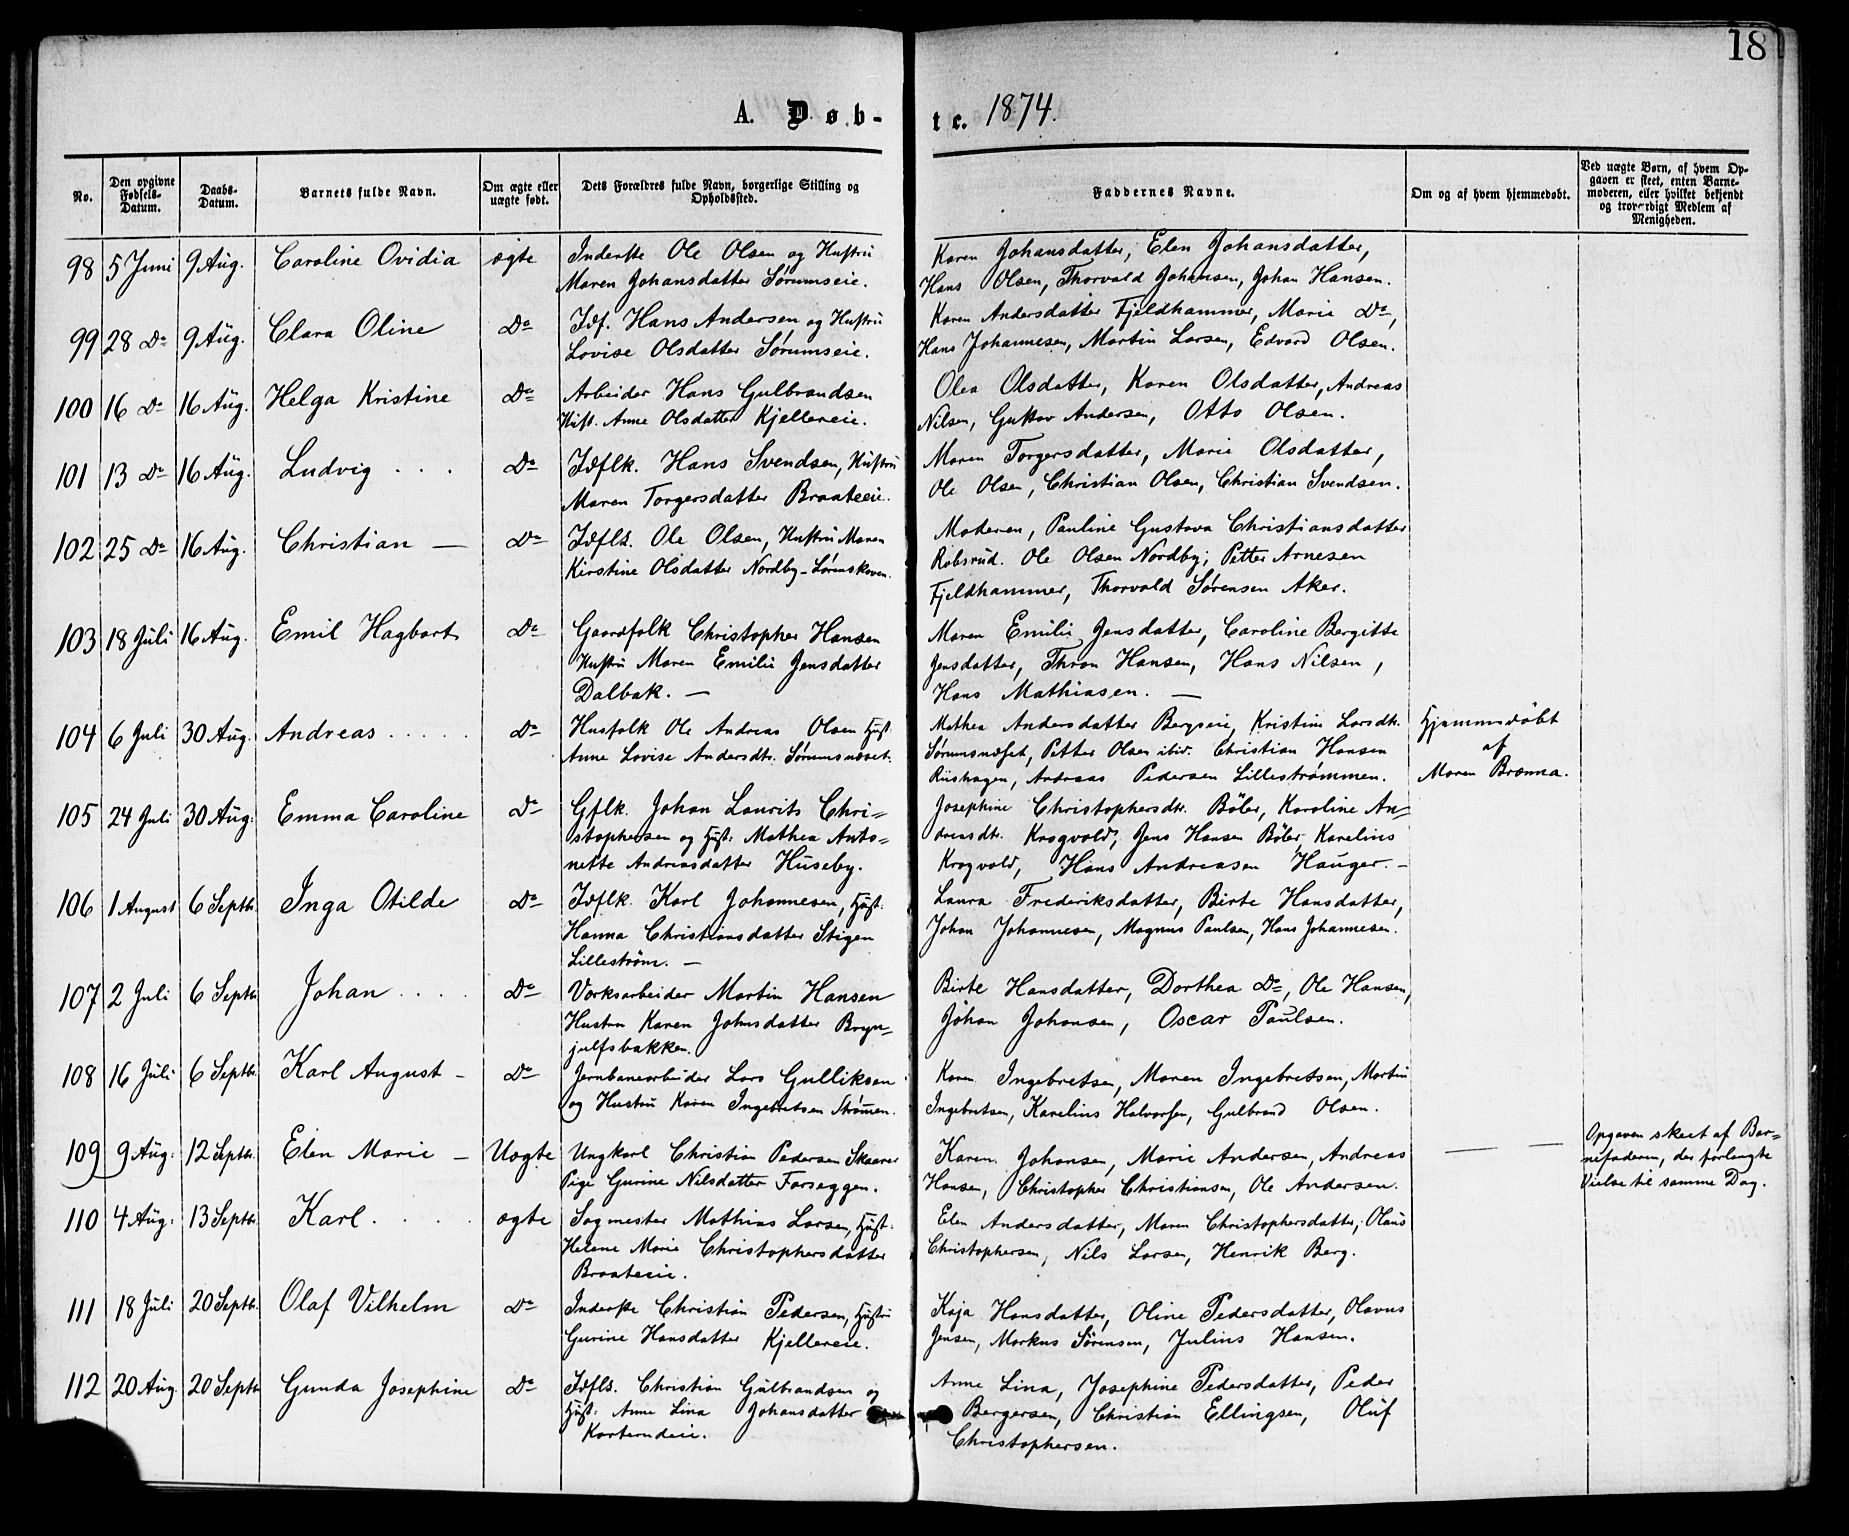 18
A. Døb-
te. 1874.
No.
Den opgivne Fødsels-Datum.
Daabs-Datum.
Barnets fulde Navn.
Om ægte eller uægte født.
Dets Forældres fulde Navn, borgerlige Stilling og Opholdssted.
Faddernes Navne.
Om og af hvem hjemmedøbt.
Ved uægte Børn, af hvem Opgaven er skeet, enten Barnemoderen, eller hvilket bekjendt og troværdigt Medlem af Menigheden.
98 5 Juni 9 Aug. Caroline Ovidia ægte Inderste Ole Olsen og Hustru
Maren Johansdatter Sørumseie.
Karen Johansdatter, Elen Johansdatter,
Hans Olsen, Thorvald Johansen, Johan Hansen.
99 28 Do 9 Aug. Clara Oline Do Idf. Hans Andersen og Hustru
Lovise Olsdatter Sørumseie.
Karen Andersdatter Fjeldhammer, Marie Do,
Hans Johannesen, Martin Larsen, Edvard Olsen.
100 16 Do 16 Aug. Helga Kristine Do Arbeider Hans Gulbrandsen
Hust. Anne Olsdatter Kjellereie.
Olea Olsdatter, Karen Olsdatter, Andreas
Nilsen, Gustav Andersen, Otto Olsen.
101 13 Do 16 Aug. Ludvig . . . Do Idflk. Hans Svendsen, Hustru
Maren Torgersdatter Braateeie.
Maren Torgersdatter, Marie Olsdatter,
Ole Olsen, Christian Olsen, Christian Svendsen.
102 25 Do 16 Aug. Christian — Do Idflk. Ole Olsen, Hustru Maren
Kirstine Olsdatter Nordby-Lørenskoven.
Moderen, Pauline Gustava Christiansdatter
Robsrud. Ole Olsen Nordby, Petter Arnesen
Fjeldhammer, Thorvald Sørensen Aker.
103 18 Juli 16 Aug. Emil Hagbart Do Gaardfolk Christopher Hansen
Hustru Maren Emilie Jensdatter
Dalbak. —
Maren Emilie Jensdatter, Caroline Bergitte
Jensdatter, Thron Hansen, Hans Nilsen,
Hans Mathiasen. —
104 6 Juli 30 Aug. Andreas . . . . . Do Husfolk Ole Andreas Olsen Hust.
Anne Lovise Andersdtr. Sørumsnæset.
Mathea Andersdatter Bergseie, Kristine Larsdtr.
Sørumsnæset, Petter Olsen ibid. Christian Hansen
Riishagen, Andreas Pedersen Lillestrømmen.
Hjemmedöbt
af
Maren Brænna.
105 24 Juli 30 Aug. Emma Caroline Do Gflk. Johan Laurits Chri=
stophersen og Hust: Mathea Anto=
nette Andreasdatter Huseby.
Josephine Christophersdtr. Böler, Karoline An=
dreasdtr. Krogvold, Jens Hansen Böler, Karelius
Krogvold, Hans Andreasen Hauger. —
106 1 August 6 Septb. Inga Otilde Do Idflk. Karl Johannesen, Hust.
Hanna Christiansdatter Stigen
Lilleström. —
Laura Frederiksdatter, Birte Hansdatter,
Johan Johannesen, Magnus Paulsen, Hans Johannesen.
107 2 Juli 6 Septb. Johan . . . . Do Værksarbeider Martin Hansen
Hustru Karen Johnsdatter Bryn=
julfsbakken.
Birte Hansdatter, Dorthea Do, Ole Hansen,
Johan Johansen, Oscar Paulsen.
108 16 Juli 6 Septb. Karl August – Do Jernbanearbeider Lars Gulliksen
og Hustru Karen Ingebretsen Strømmen.
Karen Ingebretsen, Maren Ingebretsen, Martin
Ingebretsen, Karelius Halvorsen, Gulbrand Olsen.
109 9 Aug. 12 Septb. Elen Marie — Uægte Ungkarl Christian Pedersen Skaarer
Pige Gurine Nilsdatter Farseggen.
Karen Johansen, Marie Andersen, Andreas
Hansen, Christopher Christiansen, Ole Andersen.
— —
Opgaven skeet af Bar=
nefaderen, der forlangte
Vielse til samme Dag.
110 4 Aug. 13 Septb. Karl . . . . ægte Sagmester Mathias Larsen, Hust.
Helene Marie Christophersdatter
Braateeie.
Elen Andersdatter, Maren Christophersdatter, Olaus
Christophersen, Nils Larsen, Henrik Berg.
111 18 Juli 20 Septb. Olaf Vilhelm Do Inderste Christian Pedersen, Hustru
Gurine Hansdatter Kjellereie.
Kaja Hansdatter, Oline Pedersdatter, Olavus
Jensen, Markus Sörensen, Julius Hansen.
112 20 Aug. 20 Septb. Gunda Josephine Do Idflk. Christian Gulbrandsen og
Hust: Anne Lina Johansdatter
Karterudeie.
Anne Lina, Josephine Pedersdatter, Peder
Bergersen, Christian Ellingsen, Oluf
Christophersen.